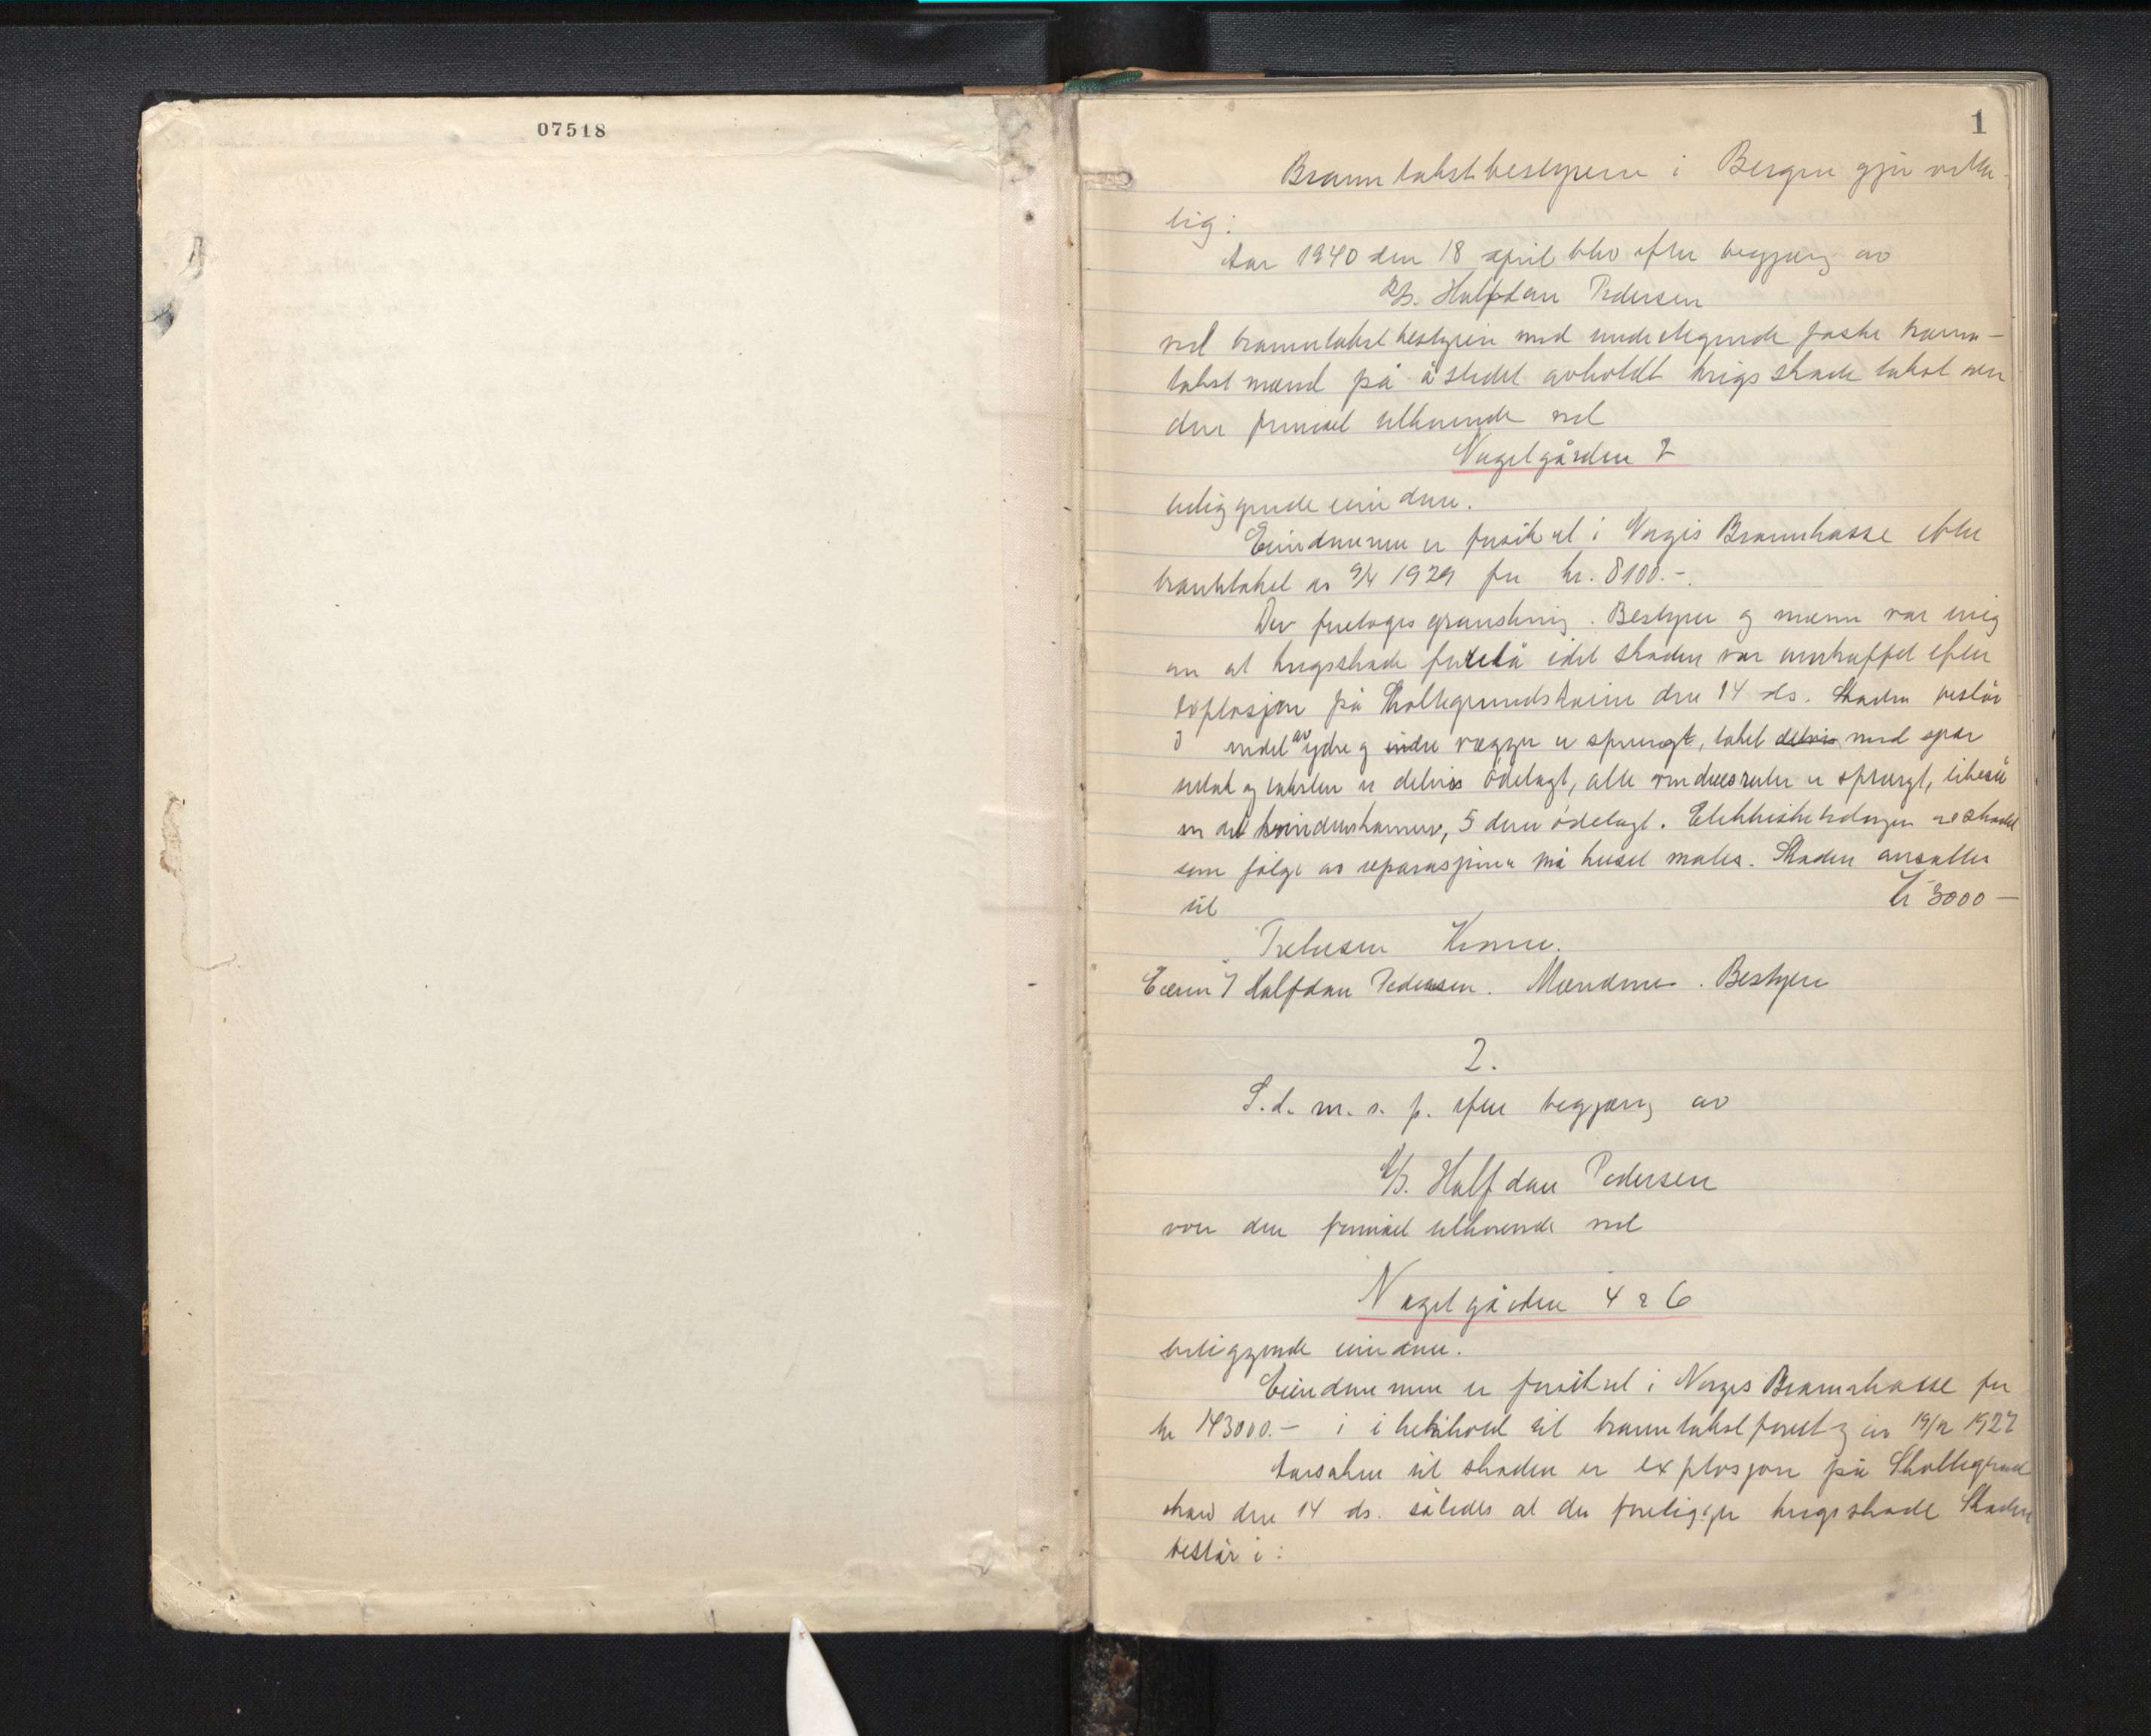 07518
1
Branntakstbestyreren i Bergen gjør vitter-
lig:
Aar 1940 den 18 april blev efter begjæring av
A/S. Halfdan Pedersen
ved branntakstbestyreren med undertegnede faste brann-
takstmænd på åstedet avholdt krigsskade takst over
den firmaet tilhørende ved
Nagelgården 2
beliggende eiendom.
Eiendommen er forsikret i Norges Brannkasse efter
branntakst av 9/4 1929 for kr. 8100.-.
Der foretoges granskning. Bestyrer og mænn var enig
om at krigsskade forelå idet skaden var indtruffet efter
explosjon på Skoltegrundskaien den 14 ds. Skaden består
i endel av ydre og indre vægger er sprengt, taket delvis med spær
undtak og taksten er delvis ødelagt, alle vinduesruter er sprengt, likeså
en del vinduskarmer, 5 dører ødelagt. Elektriske ledninger er skadet
som følge av reparasjonen må huset males. Skaden ansattes
til kr 3000 -
Tretusen Kroner.
Eieren A/S Halfdan Pedersen. Mændene. Bestyrer
2.
S. d. m. s. p. efter begjæring av
A/S. Halfdan Pedersen
over den firmaet tilhørende ved
Nagelgården 4 & 6
beliggende eiendom.
Eiendommen er forsikret i Norges Brannkasse for
kr 143000.- i i henhold til branntakstforretning av 19/12 1927
Aarsaken til skaden er explosjon på Skoltegrund
skaien den 14 ds. således at der foreligger krigsskade Skaden
består i: